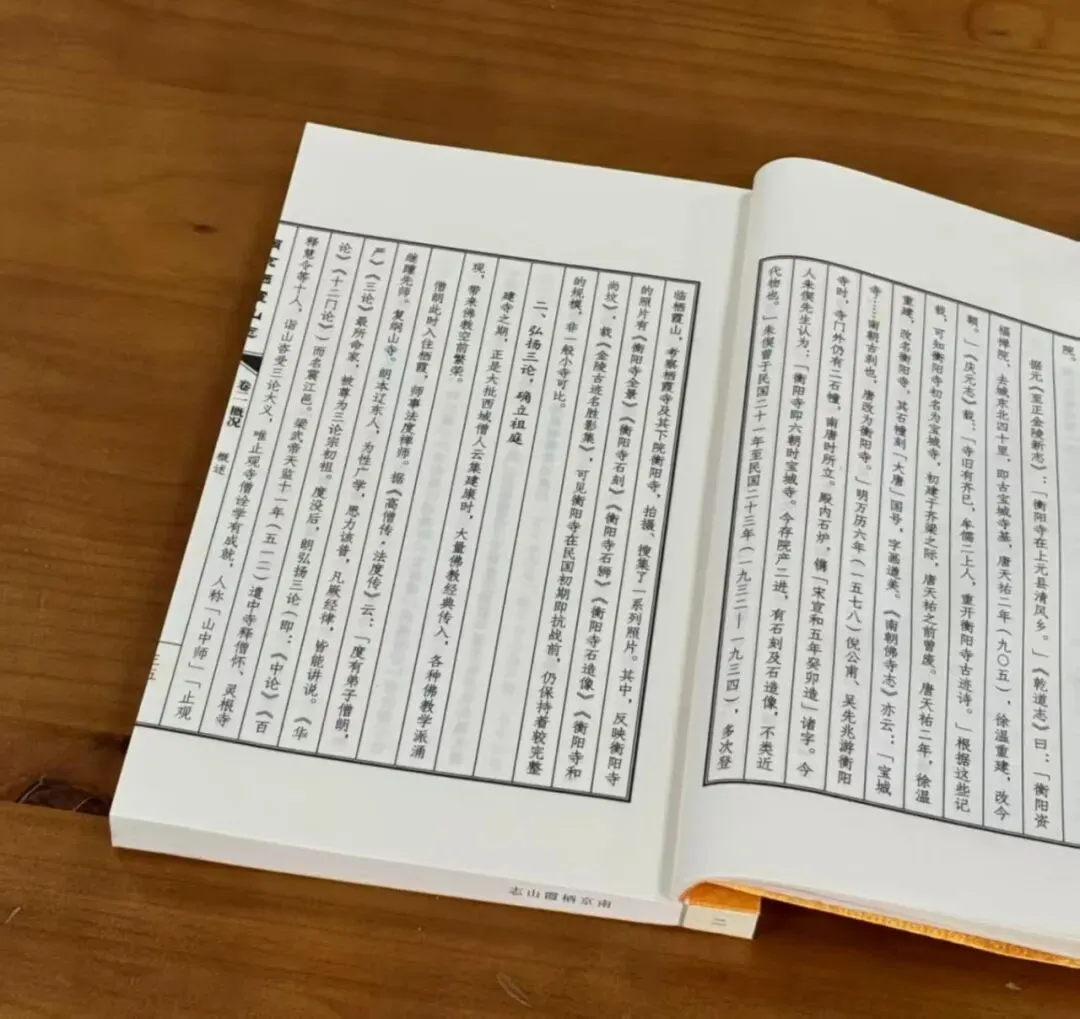 院。
据元《至正金陵新志》：「衡阳寺在上元县清风乡。」《乾道志》曰：「衡阳资
福禅院，去城东北四十里，即古宝城寺基，唐天祐二年（九〇五），徐温重建，改今
额。」《庆元志》载：「寺旧有齐已，牟儒二上人，重开衡阳寺古迹诗。」根据这些记
载，可知衡阳寺初名为宝城寺，初建于齐梁之际，唐天祐之前曾废。唐天祐二年，徐温
重建，改名衡阳寺，其石幢刻「大唐」国号，字画遒美。《南朝佛寺志》亦云：「宝城
寺……南朝古刹也，唐改为衡阳寺。」明万历六年（一五七八）倪公甫、吴先兆游衡阳
寺时，寺门外仍有二石幢，南唐时所立。殿内石炉，镌「宋宣和五年癸卯造」诸字。今
人朱偰先生认为：「衡阳寺即六朝时宝城寺。今存院产二进，有石刻及石造像，不类近
代物也。」朱偰曾于民国二十一年至民国二十三年（一九三二—一九三四），多次登
临栖霞山，考察栖霞寺及其下院衡阳寺，拍摄、搜集了一系列照片。其中，反映衡阳寺
的照片有《衡阳寺全景》《衡阳寺石刻》《衡阳寺石狮》《衡阳寺石造像》《衡阳寺和
尚坟》，载《金陵古迹名胜影集》，可见衡阳寺在民国初期即抗战前，仍保持着较完整
的规模，非一般小寺可比。
二、弘扬三论，确立祖庭
建寺之期，正是大批西域僧人云集建康时，大量佛教经典传入，各种佛教学派涌
现，带来佛教空前繁荣。
僧朗此时入住栖霞，师事法度禅师。据《高僧传，法度传》云：「度有弟子僧朗，
继踵先师。复纲山寺。朗本辽东人，为性广学，思力该普，凡厥经律，皆能讲说。《华
严》《三论》最所命家，被尊为三论宗初祖。度没后，朗弘扬三论（即：《中论》《百
论》《十二门论》）而名震江邑。梁武帝天监十一年（五一二）遣中寺释僧怀、灵根寺
释慧令等十人，诣山咨受三论大义，唯止观寺僧诠学有成就，人称「山中师」「止观
南京栖霞山志
卷二 概况
概述
三五
南京栖霞山志
二